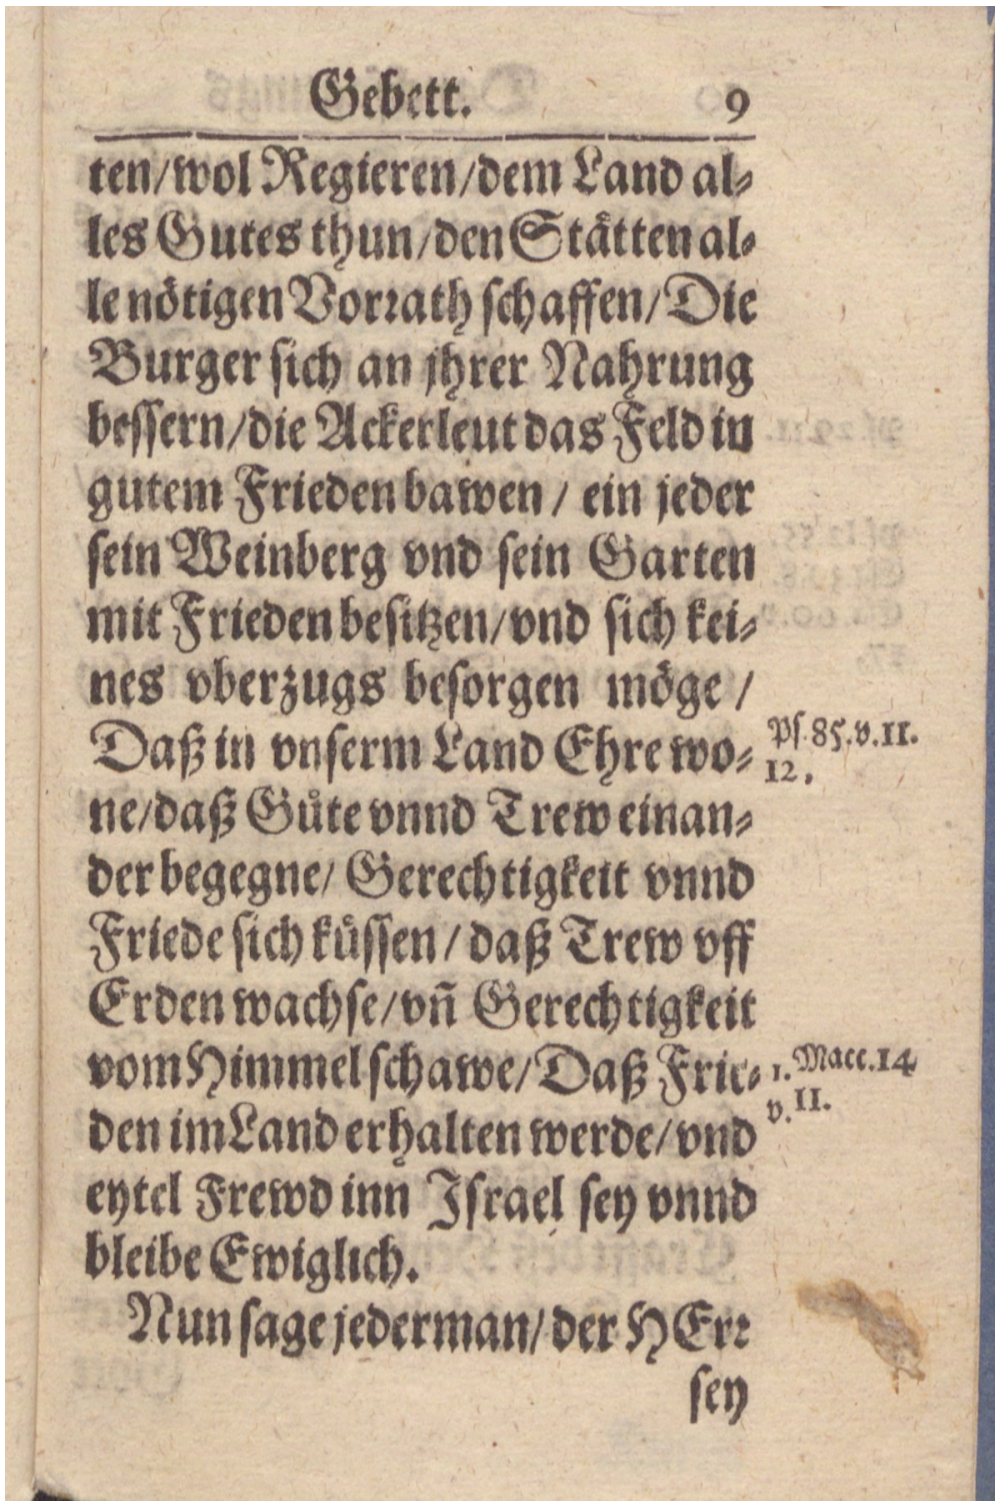 Gebett. 9
ten/wol Regieren/dem Land al⸗
les Gutes thun/den Stätten al⸗
le nötigen Vorrath schaffen/Die
Burger sich an jhrer Nahrung
bessern/die Ackerleut das Feld in
gutem Frieden bawen/ ein jeder
sein Weinberg vnd sein Garten
mit Frieden besitzen/vnd sich kei⸗
nes vberzugs besorgen möge/
Daß in vnserm Land Ehre wo⸗
Ps. 85. v. 11.
12.
ne/daß Güte vnnd Trew einan⸗
der begegne/ Gerechtigkeit vnnd
Friede sich küssen/ daß Trew vff
Erden wachse/vñ Gerechtigkeit
vom Himmel schawe/Daß Frie⸗
1. Macc. 14
v. 11.
den im Land erhalten werde/vnd
eytel Frewd inn Israel sey vnnd
bleibe Ewiglich.
Nun sage jederman/der HErr
sey